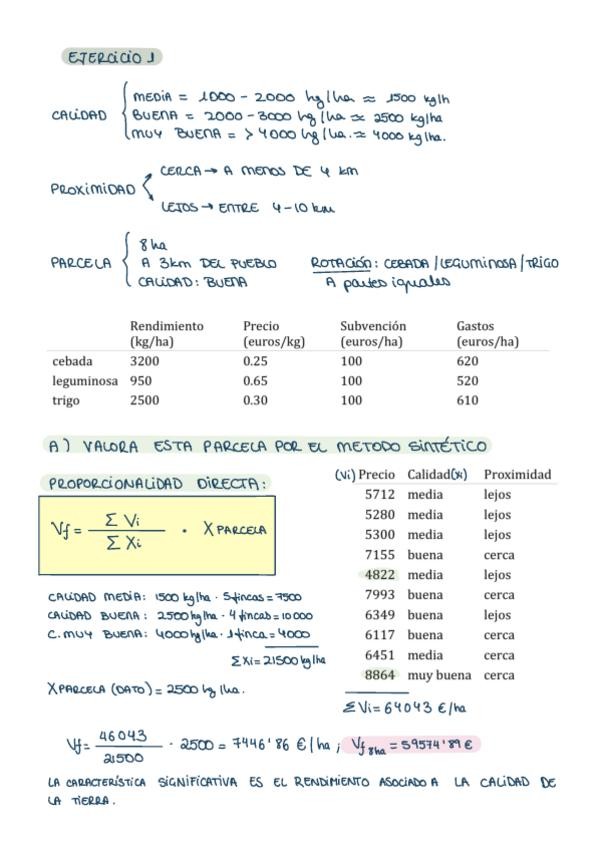 EJERCICIO 1
CALIDAD
MEDIA = 1000 - 2000 kg/ha ≈ 1500 kg/h
BUENA = 2000 - 3000 kg/ha ≈ 2500 kg/ha
MUY BUENA = > 4000 kg/ha. ≈ 4000 kg/ha.
PROXIMIDAD
CERCA → A MENOS DE 4 km
LEJOS → ENTRE 4-10 km
PARCELA
8 ha
A 3km DEL PUEBLO
CALIDAD: BUENA
ROTACIÓN: CEBADA / LEGUMINOSA / TRIGO
A partes iguales
Rendimiento (kg/ha) Precio (euros/kg) Subvención (euros/ha) Gastos (euros/ha)
cebada 3200 0.25 100 620
leguminosa 950 0.65 100 520
trigo 2500 0.30 100 610
A) VALORA ESTA PARCELA POR EL METODO SINTÉTICO
PROPORCIONALIDAD DIRECTA:
Vf = Σ Vi / Σ Xi · X PARCELA
(Vi) Precio Calidad (Xi) Proximidad
5712 media lejos
5280 media lejos
5300 media lejos
7155 buena cerca
4822 media lejos
7993 buena cerca
6349 buena lejos
6117 buena cerca
6451 media cerca
8864 muy buena cerca
Σ Vi = 64043 €/ha
CALIDAD MEDIA: 1500 kg/ha · 5 fincas = 7500
CALIDAD BUENA: 2500 kg/ha · 4 fincas = 10000
C. MUY BUENA: 4000 kg/ha · 1 finca = 4000
Σ Xi = 21500 kg/ha
X PARCELA (DATO) = 2500 kg/ha.
Vf = 46043 / 21500 · 2500 = 7446'86 €/ha ; Vf 8ha = 59574'89 €
LA CARACTERÍSTICA SIGNIFICATIVA ES EL RENDIMIENTO ASOCIADO A LA CALIDAD DE
LA TIERRA.